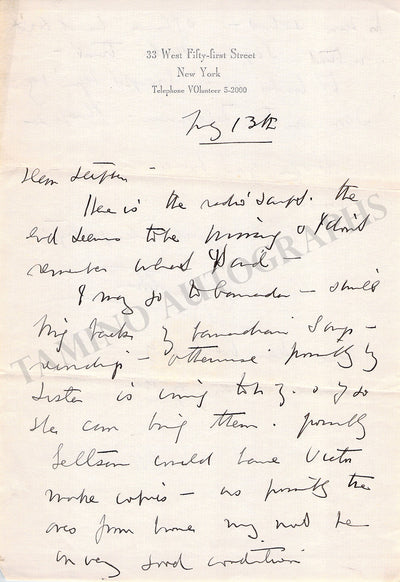 33 West Fifty-first Street
New York
Telephone VOlunteer 5-2000
July 13th
Dear
Here is the radio script. The
end seems to be missing & I don't
remember what I said –
I may go to Canada –
bring back my Canadian Songs –
recordings – otherwise possibly my
sister is coming to N.Y. & if so
she can bring them. Possibly
could have Victor
make copies – as possibly the
ones from home may not be
in very good condition
TAMINO AUTOGRAPHS